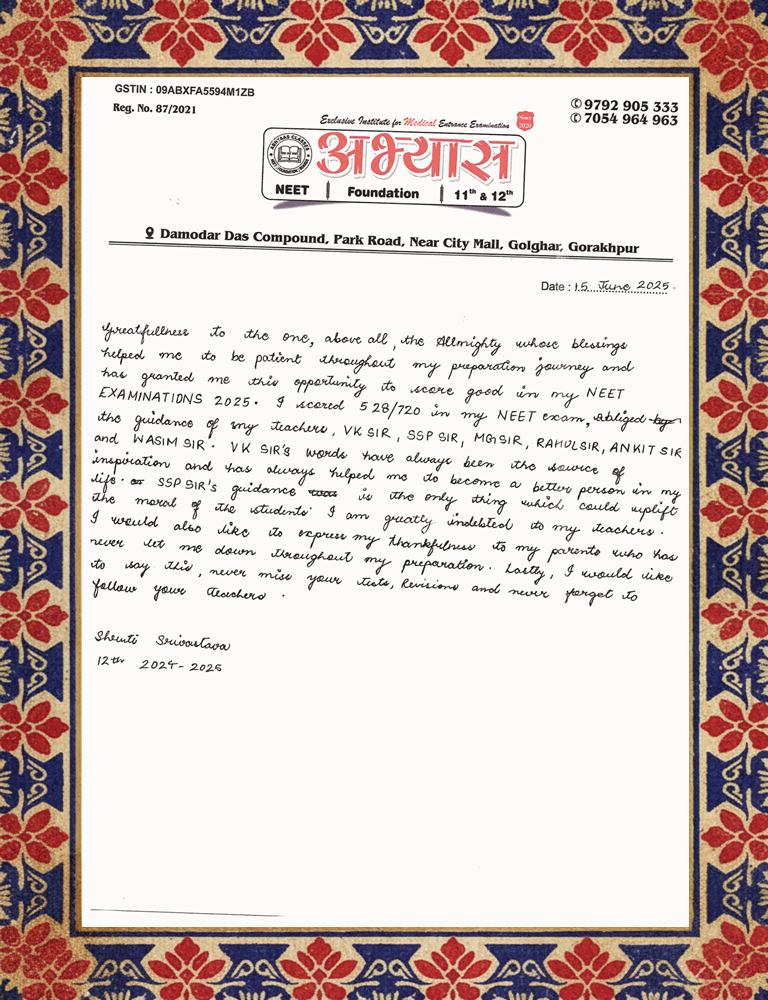 GSTIN : 09ABXFA5594M1ZB
Reg. No. 87/2021
✆ 9792 905 333
✆ 7054 964 963
Exclusive Institute for Medical Entrance Examination
Since 2020
ABHYAAS CLASSES
अभ्यास
NEET | Foundation | 11th & 12th
Damodar Das Compound, Park Road, Near City Mall, Golghar, Gorakhpur
Date : 15 June 2025.
Greatfullness to the one, above all, the Allmighty whose blessings
helped me to be patient throughout my preparation journey and
has granted me this opportunity to score good in my NEET
EXAMINATIONS 2025. I scored 528/720 in my NEET exam, obliged
the guidance of my teachers, VK SIR, SSP SIR, MG SIR, RAHUL SIR, ANKIT SIR
and WASIM SIR. VK SIR's words have always been the source of
inspiration and has always helped me to become a better person in my
life. SSP SIR's guidance is the only thing which could uplift
the moral of the students. I am greatly indebted to my teachers.
I would also like to express my thankfulness to my parents who has
never let me down throughout my preparation. Lastly, I would like
to say this, never miss your tests, Revisions and never forget to
follow your teachers.
Shruti Srivastava
12th 2024-2025